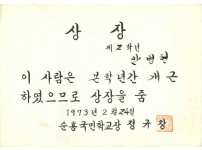 상장
제 2 학년
안병현
이 사람은 본학년간 개근
하였으므로 상장을 줌
1973年 2월 24일
순흥국민학교장 정규창